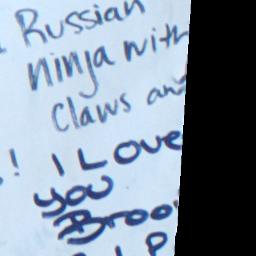 Russian
ninja with
claws and
! I Love
you